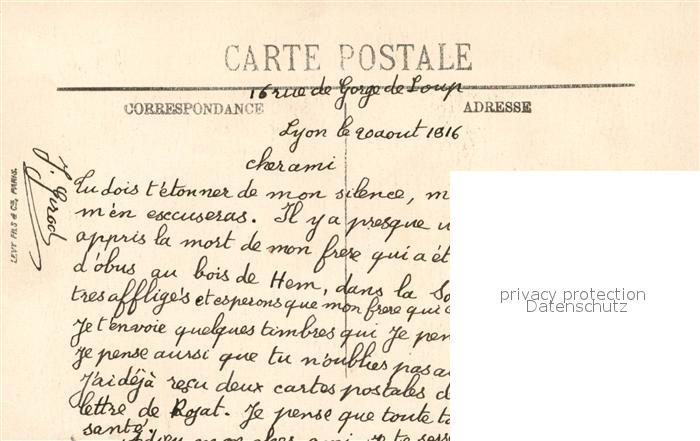 CARTE POSTALE
16 rue de Gorge de Loup
CORRESPONDANCE
ADRESSE
Lyon le 20 aout 1816
cher ami
Tu dois t'étonner de mon silence, m
m'en esccuseras. Il y a presque u
appris la mort de mon frere qui a ét
d'obus au bois de Hem, dans la So
tres affligés et esperons que mon frere qui
Je t'envoie quelques timbres qui je pen
je pense aussi que tu n'oublies pas au
J'ai déjà reçu deux cartes postales d
lettre de Royat. Je pense que toute ta
santé.
mon cher ami je te
J. Girod
LEVY FILS & CIE, PARIS.
privacy protection
Datenschutz